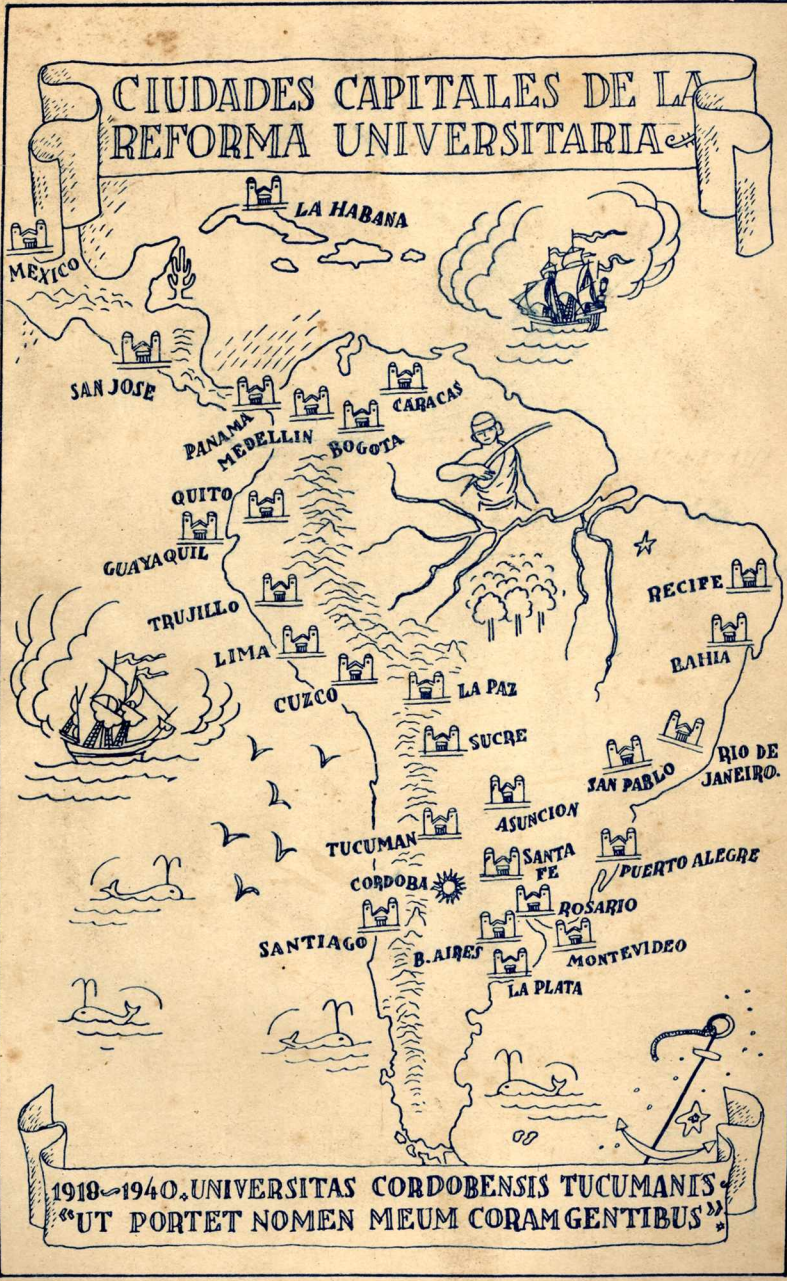 CIUDADES CAPITALES DE LA
REFORMA UNIVERSITARIA
LA HABANA
MEXICO
SAN JOSE
CARACAS
PANAMA
MEDELLIN
BOGOTA
QUITO
GUAYAQUIL
RECIFE
TRUJILLO
LIMA
BAHIA
CUZCO
LA PAZ
SUCRE
RIO DE
JANEIRO.
SAN PABLO
ASUNCION
TUCUMAN
SANTA
FE
PUERTO ALEGRE
CORDOBA
ROSARIO
SANTIAGO
B. AIRES
MONTEVIDEO
LA PLATA
1918~1940. UNIVERSITAS CORDOBENSIS TUCUMANIS.
"UT PORTET NOMEN MEUM CORAM GENTIBUS"